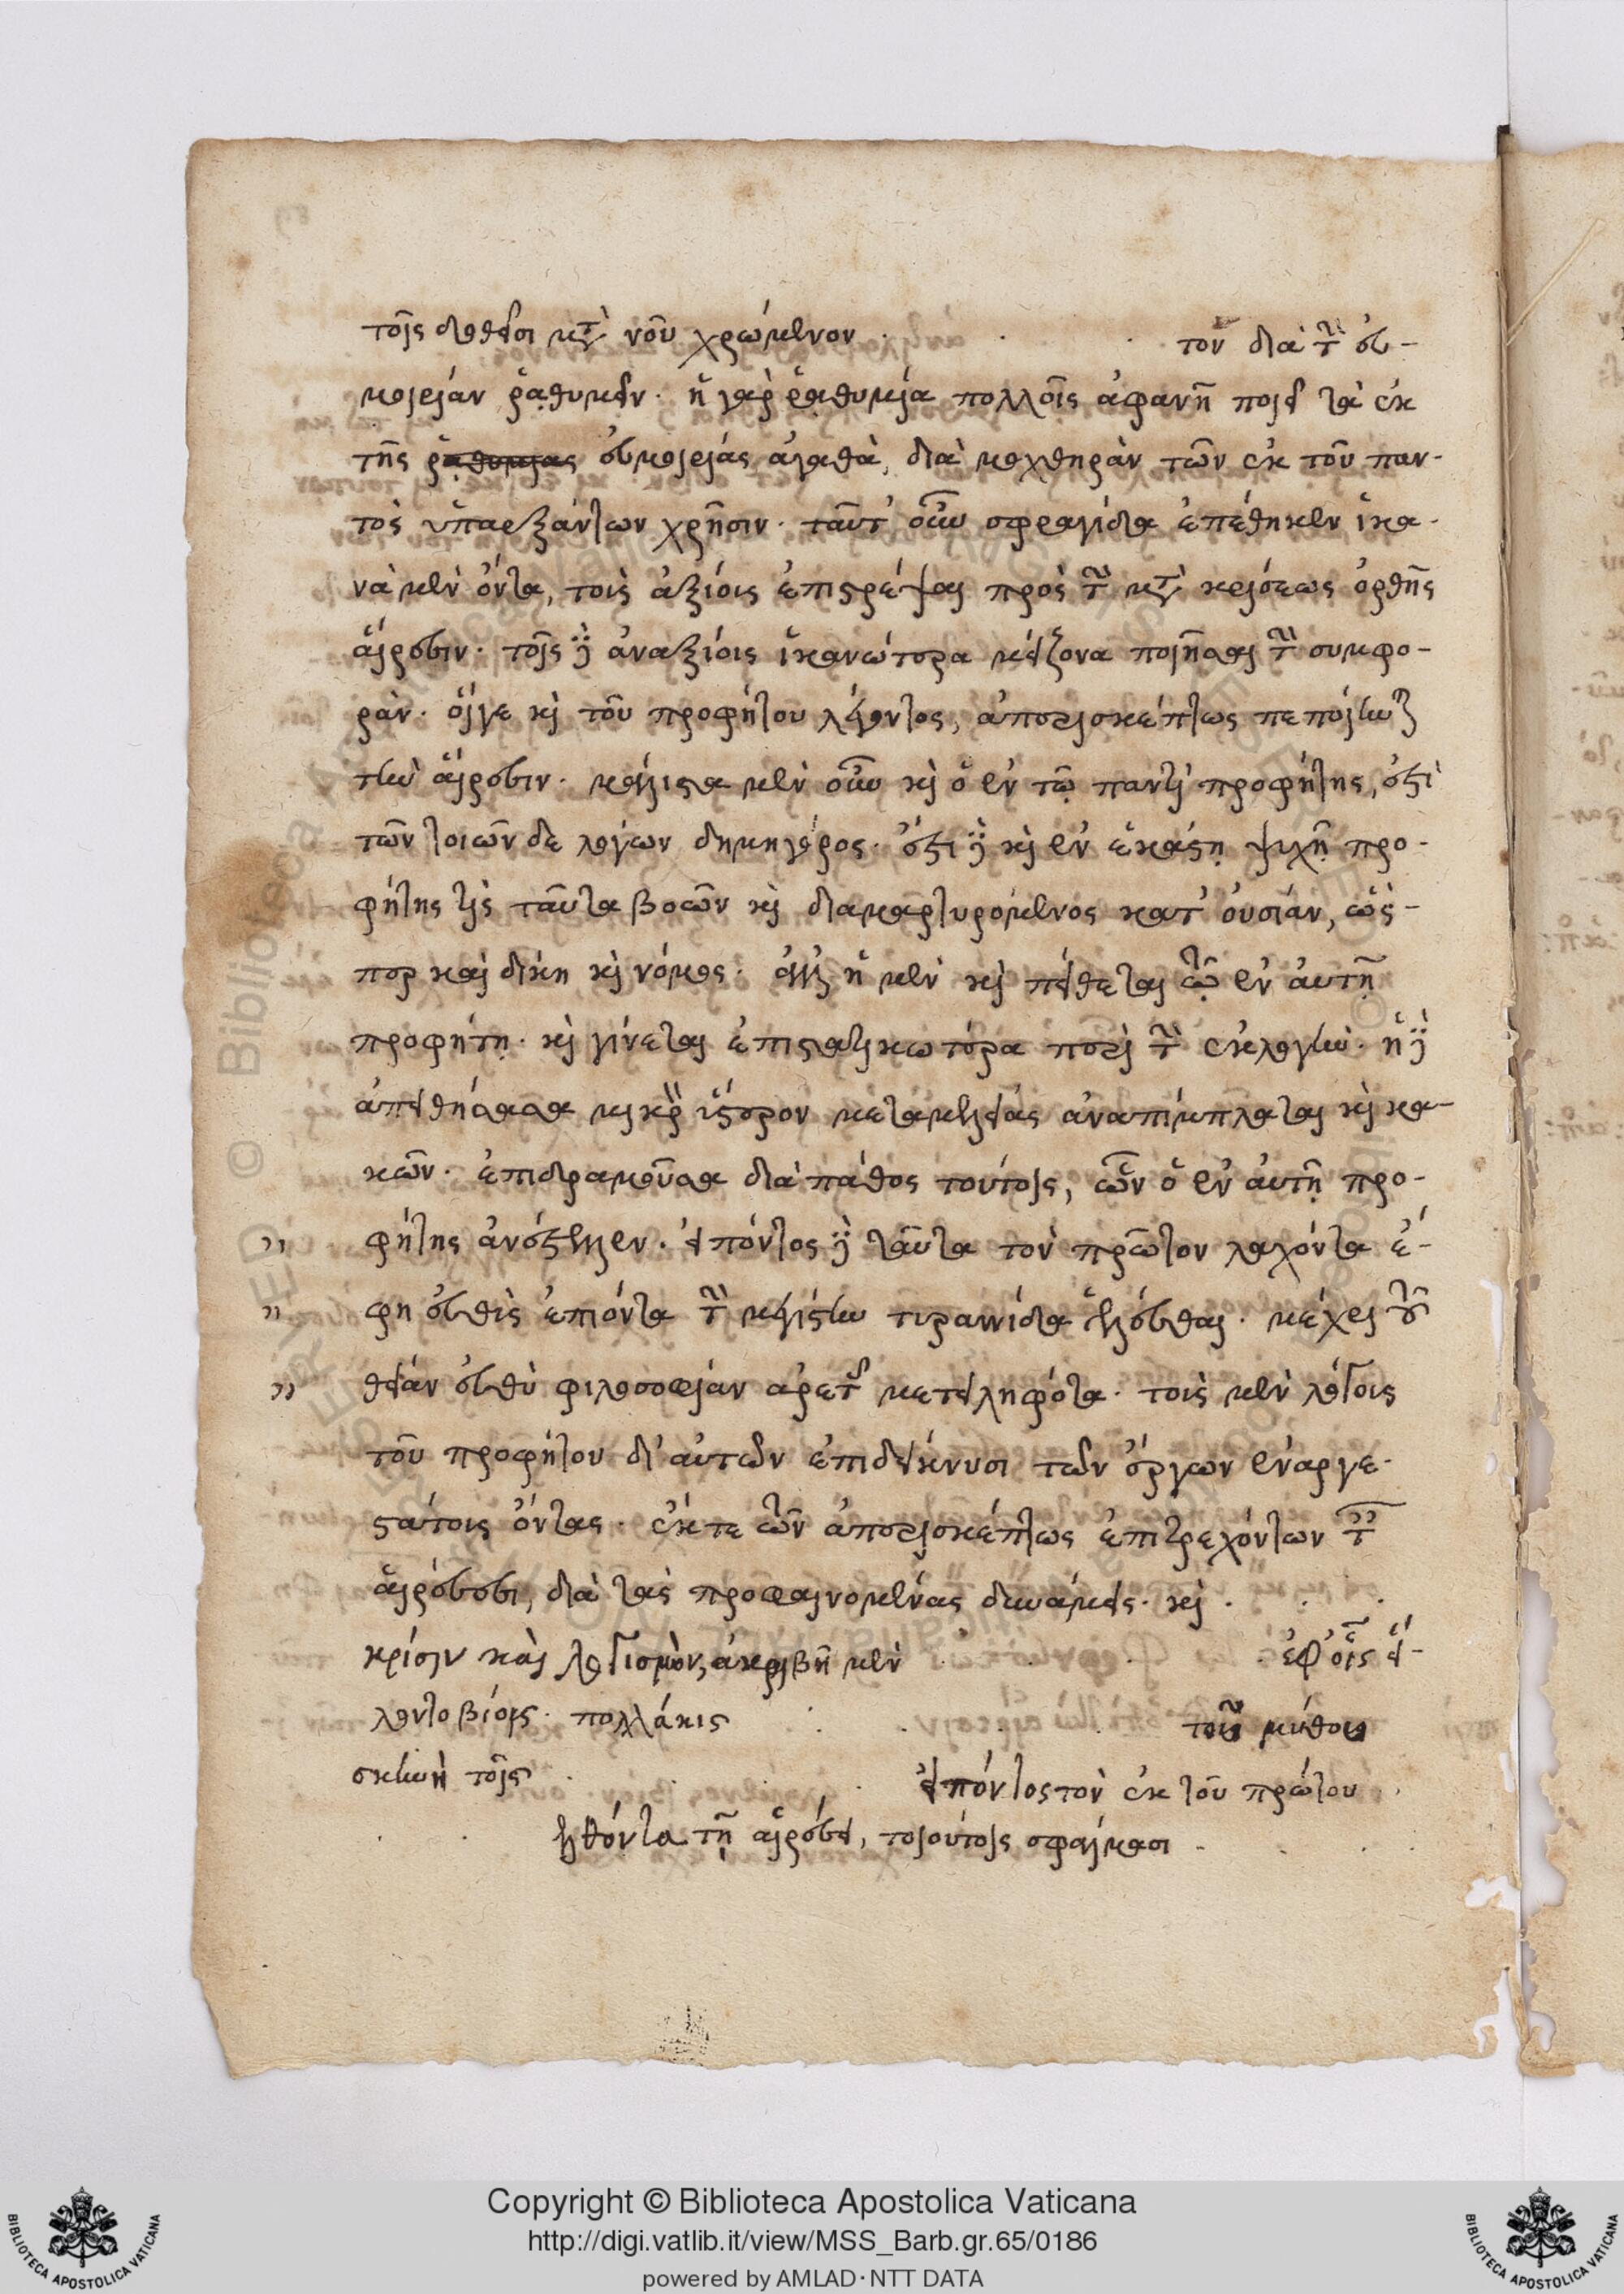 τοῖς δοθεῖσι κατὰ νοῦν χρώμενον . . . τὸν διὰ τὴν εὐ-
μοιρίαν ῥᾳθυμεῖν. ἡ γὰρ ῥᾳθυμία πολλοῖς ἀφανῆ ποιεῖ τὰ ἐκ
τῆς ῥᾳθυμίας εὐμοιρίας ἀγαθὰ, διὰ μοχθηρὰν τῶν ἐκ τοῦ παν-
τὸς ὑπαρξάντων χρῆσιν. ταῦτ' οὖν σφραγίδα ἐπέθηκεν ἱκα-
νὰ μὲν ὄντα, τοῖς ἀξίοις ἐπιστρέψαι πρὸς τὴν κατὰ κρίσεως ὀρθῆς
αἵρεσιν. τοῖς δὲ ἀναξίοις ἱκανώτερα μείζονα ποιῆσαι τὴν συμφο-
ράν. οἵγε καὶ τοῦ προφήτου λέγοντος, ἀπερισκέπτως πεποίηνται
τὴν αἵρεσιν. μάλιστα μὲν οὖν καὶ ὁ ἐν τῷ παντὶ προφήτης, ἐστὶ
τῶν τοιῶνδε λόγων δημηγόρος. ἔστι δὲ καὶ ἐν ἑκάστῃ ψυχῇ προ-
φήτης τὶς ταῦτα βοῶν καὶ διαμαρτυρόμενος κατ' οὐσίαν, ὥσ-
περ καὶ δίκη καὶ νόμος. ἀλλ' ἡ μὲν καὶ πείθεται τῷ ἐν αὐτῇ
προφήτῃ. καὶ γίνεται ἐπιστατικωτέρα περὶ τὴν ἐκλογήν. ἡ δὲ
ἀπειθήσασα μικρὸν ὕστερον μεταμελείας ἀναπίμπλαται καὶ κα-
κῶν. ἐπιδραμοῦσα διὰ πάθος τούτοις, ὧν ὁ ἐν αὐτῇ προ-
φήτης ἀνέστελλεν. εἰπόντος δὲ ταῦτα τὸν πρῶτον λαχόντα ἔ-
φη εὐθὺς ἐπιόντα τὴν μεγίστην τυραννίδα ἑλέσθαι. μέχρι τοῦ
θείαν εὐθὺ φιλοσοφίαν ἀρετῆς μετειληφότα. τοῖς μὲν λόγοις
τοῦ προφήτου δι' αὐτῶν ἐπιδείκνυσι τῶν ἔργων ἐναργε-
στάτοις ὄντας. ἔκ τε τῶν ἀπερισκέπτως ἐπιτρεχόντων ταῖς
αἱρέσεσι, διὰ τὰς προφαινομένας δυνάμεις. καὶ . . .
κρίσιν καὶ λογισμὸν, ἀκριβῆ μὲν . . . ἐφ' οἷς εἵ-
λοντο βίοις. πολλάκις . . . τοῦ μύθου
σκηνὴ τοῖς . . . εἰπόντος τὸν ἐκ τοῦ πρώτου
. . ἐλθόντα τῇ αἱρέσει, τοιούτοις σφαίμασι . . .
Copyright © Biblioteca Apostolica Vaticana
http://digi.vatlib.it/view/MSS_Barb.gr.65/0186
powered by AMLAD · NTT DATA
BIBLIOTECA APOSTOLICA VATICANA
BIBLIOTECA APOSTOLICA VATICANA